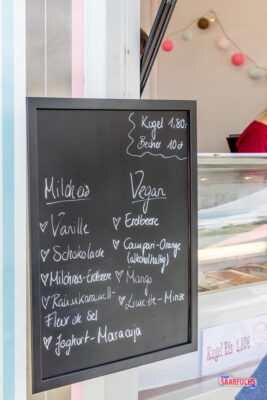 Kugel 1,80.-
Becher 10ct
Milcheis
Vanille
Schokolade
Milchreis-Erdbeere
Rahmkaramell-
Fleur de Sel
Joghurt-Maracuja
Vegan
Erdbeere
Campari-Orange
(alkoholhaltig)
Mango
Limette-Minze
Kugel Eis 1,80€
SAARFUCHS